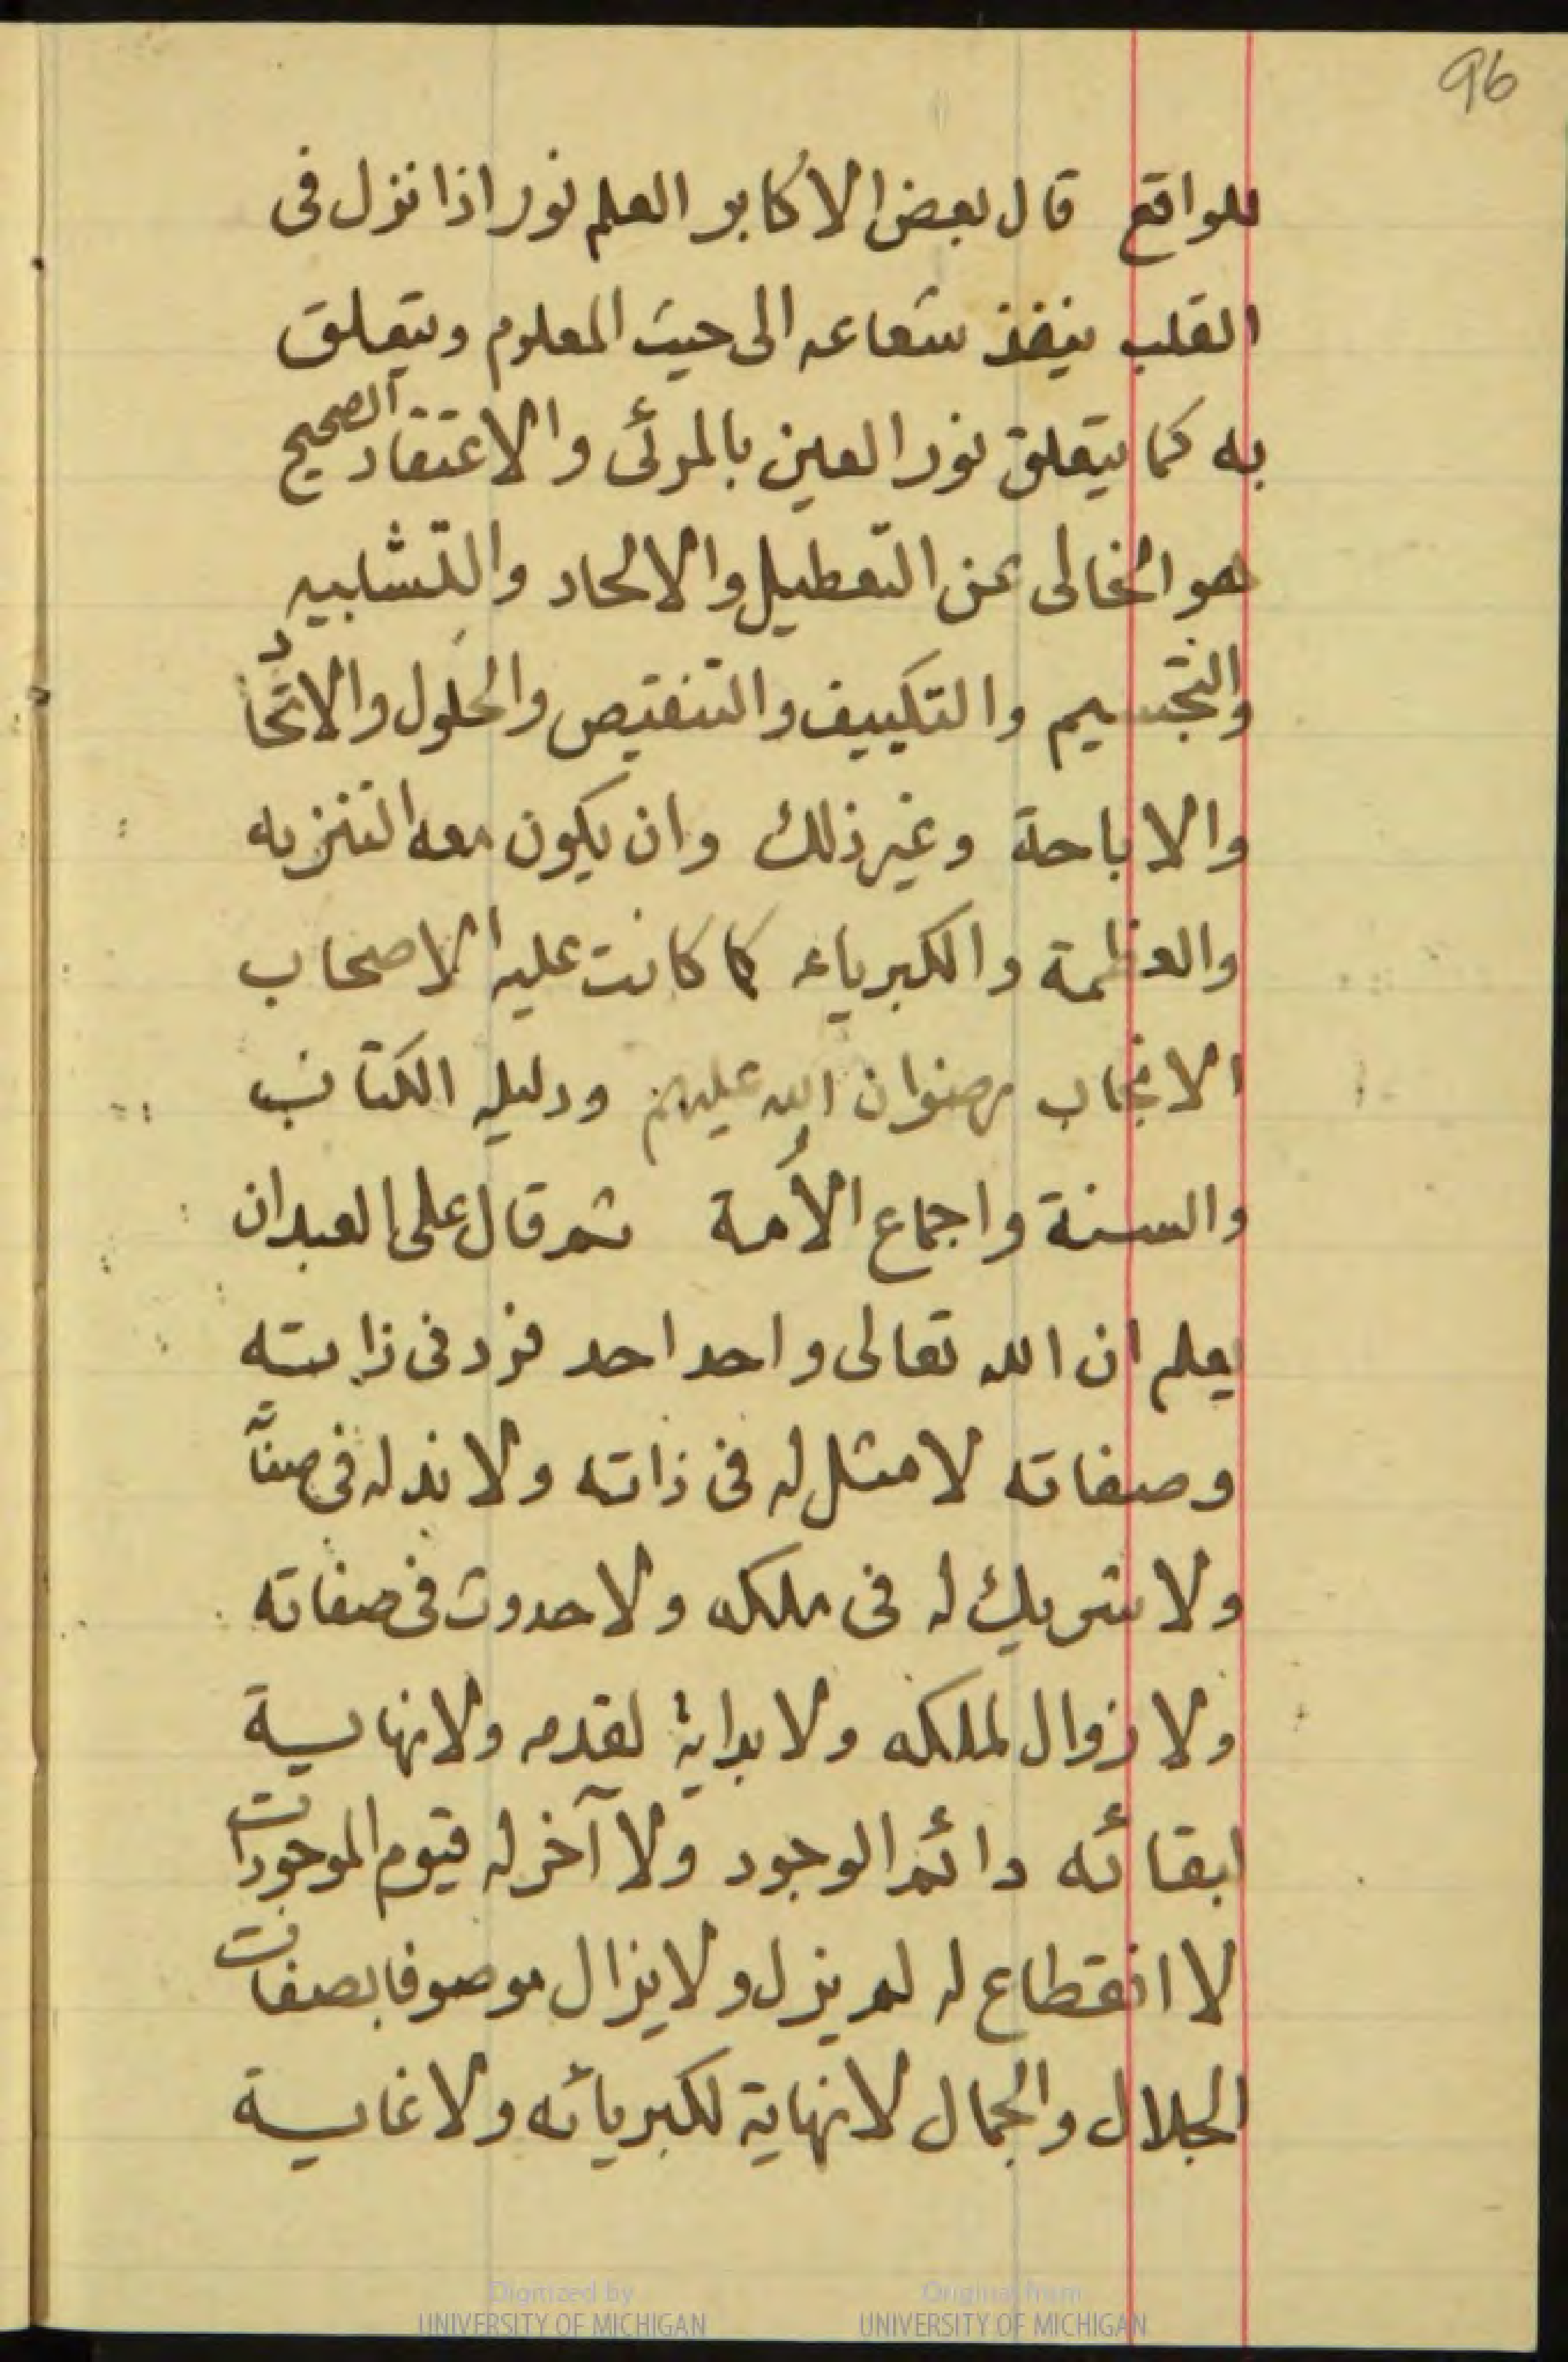 96
للواقع قال بعض الاكابر العلم نور اذا نزل فى
القلب ينفذ شعاعه الى حيث المعلوم ويتعلق
به كما يتعلق نور العين بالمرئى والاعتقاد الصحيح
هو الخالى عن التعطيل والالحاد والتشابيه
والتجسيم والتكييف والتنقيص والحلول والاتحاد
والاباحة وغير ذلك وان يكون معه التنزيه
والعظمة والكبرياء كما كانت عليه الاصحاب
الانجاب رضوان الله عليهم ودليله الكتاب
والسنة واجماع الأمة ثم قال على العبد ان
يعلم ان الله تعالى واحد احد فرد فى ذاته
وصفاته لا مثل له فى ذاته ولا ند له فى صفاته
ولا شريك له فى ملكه ولا حدوث فى صفاته
ولا زوال لملكه ولا بداية لقدمه ولا نهاية
ابقائه دائم الوجود ولا آخر له قيوم الموجودات
لا انقطاع له لم يزل ولا يزال موصوفا بصفات
الجلال والجمال لا نهاية لكبريائه ولا غاية
Digitized by UNIVERSITY OF MICHIGAN
Original from UNIVERSITY OF MICHIGAN